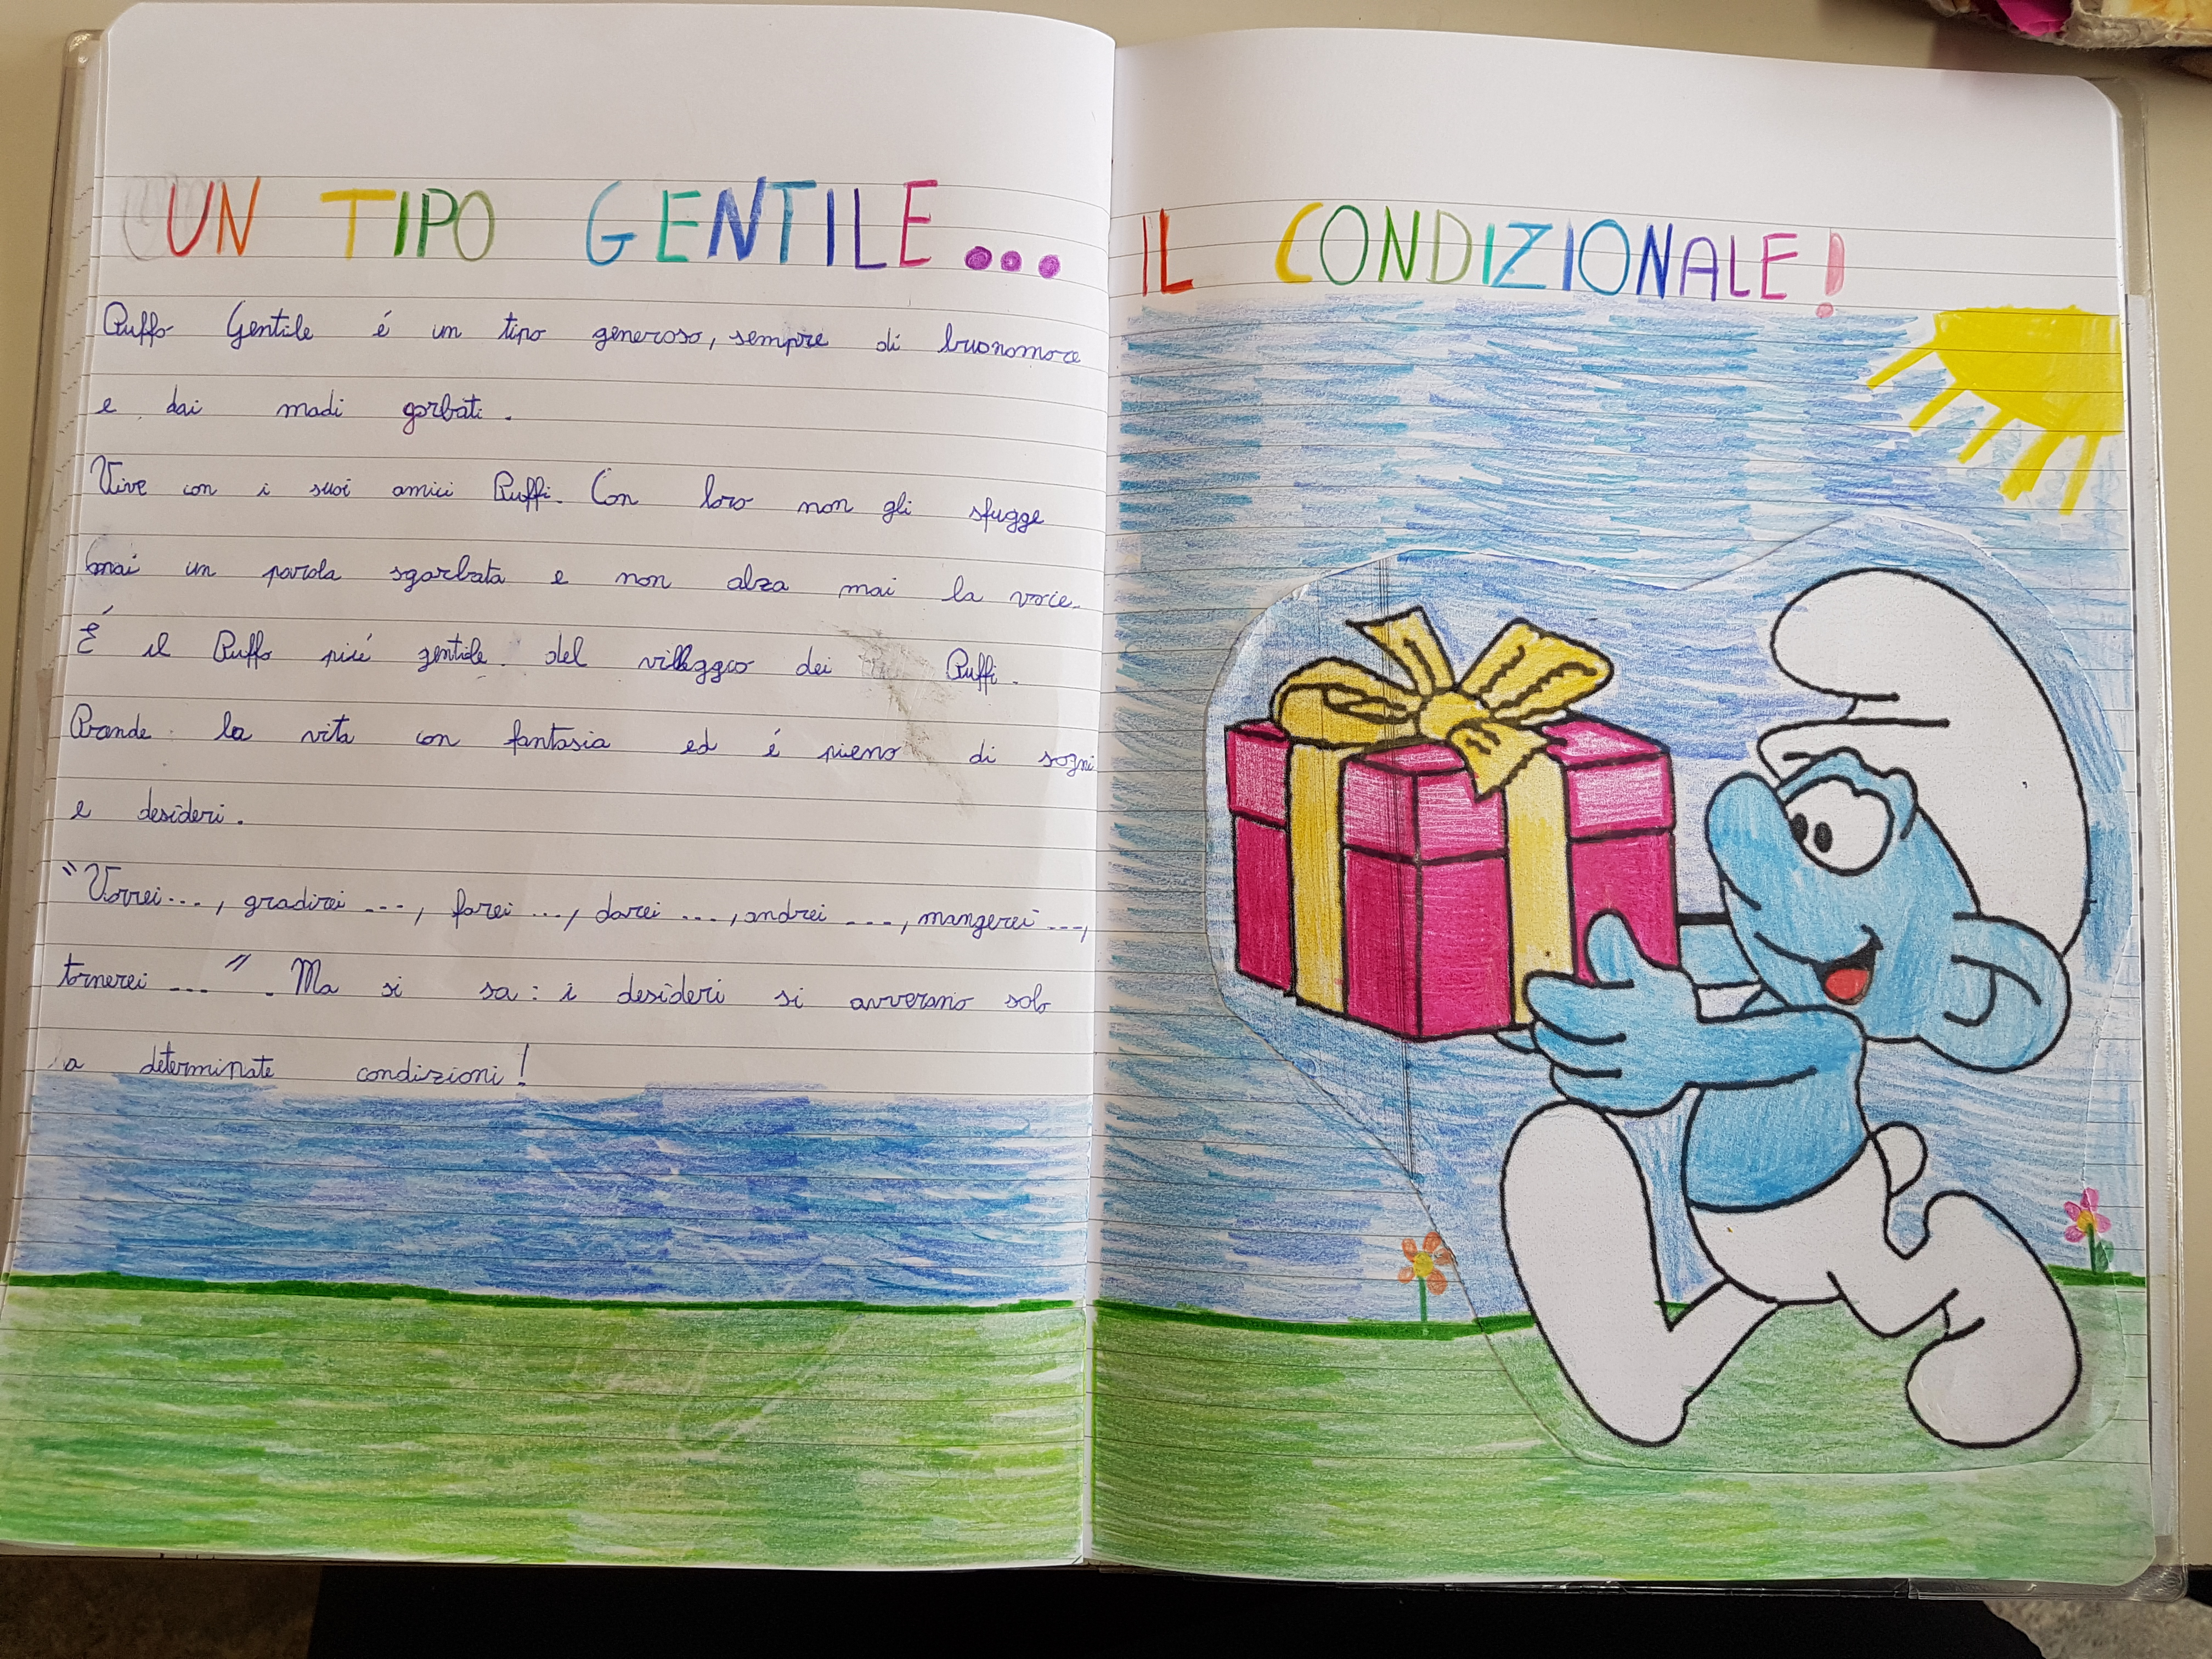 UN TIPO GENTILE...
IL CONDIZIONALE!
Puffo Gentile é un tipo generoso, sempre di buonomore
e dai madi garbati.
Vive con i suoi amici Puffi. Con loro non gli sfugge
mai un parola sgarbata e non alza mai la voce.
É il Puffo piú gentile del villaggio dei Puffi.
Prende la vita con fantasia ed é pieno di sogni
e desideri.
"Vorrei ..., gradirei ..., farei ..., darei ..., andrei ..., mangerei ...,
tornerei ..." . Ma si sa: i desideri si avverano solo
a determinate condizioni!